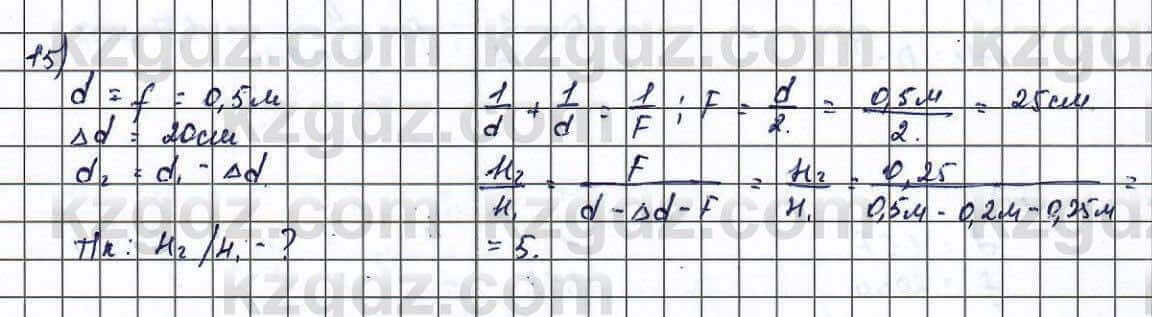 kzgdz.com kzgdz.com kzgdz
15)
d = f = 0,5м
Δd = 20см
d₂ = d₁ - Δd.
Тк: H₂/H₁ - ?
1/d + 1/d = 1/F ; F = d/2. = 0,5м/2. = 25см
H₂/H₁ = F/(d - Δd - F) = H₂/H₁ = 0,25/(0,5м - 0,2м - 0,25м) =
= 5.
kzgdz.com kzgdz.com
kzgdz.com kzgdz.com kzgdz
kzgdz.com kzgdz.com